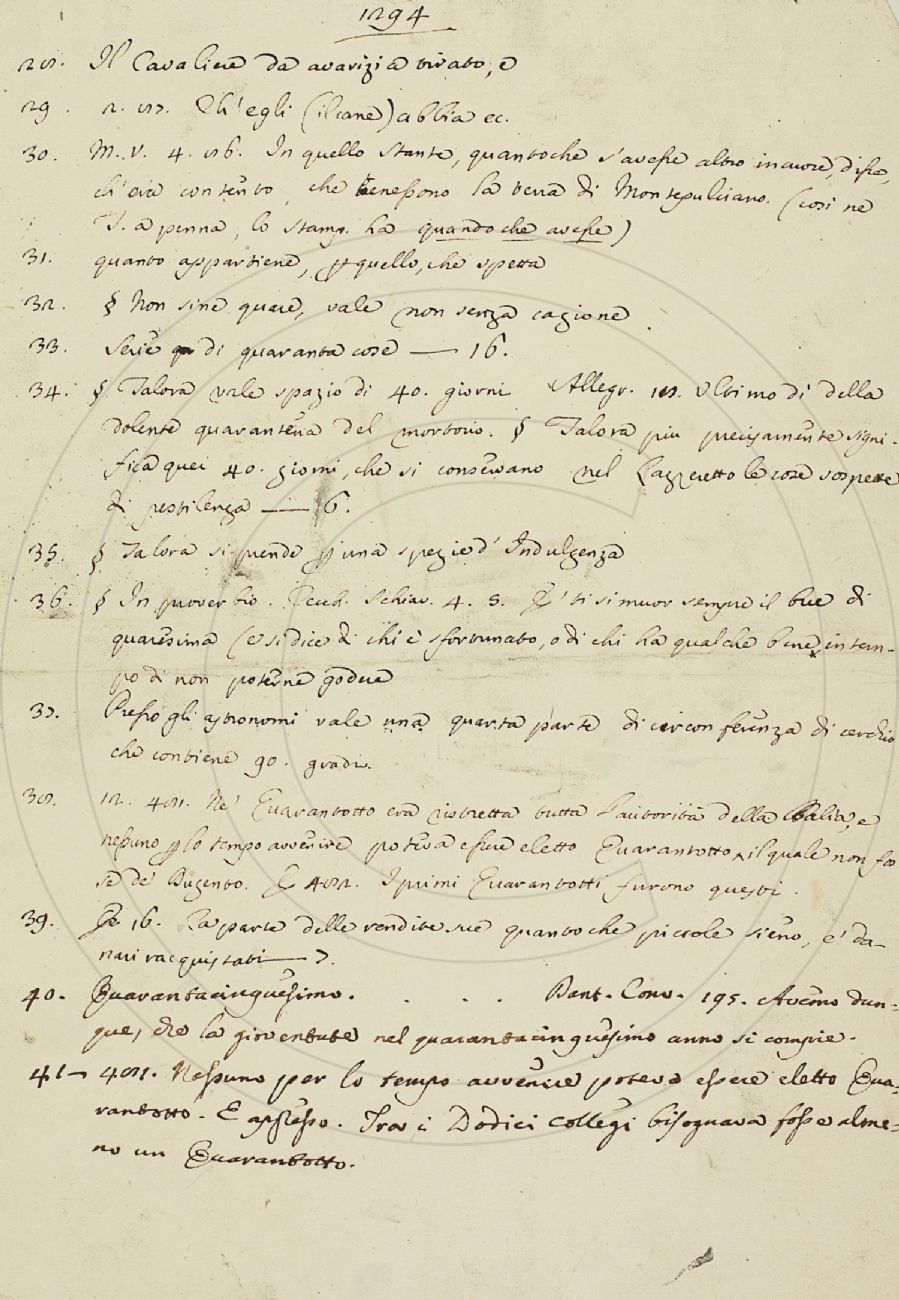 1294
28. Il Cavaliere da avarizia tirato, e
29. 2. 87. Ch'egli (il cane) abbia ec.
30. M. V. 4. 86. In quello stante, quantoche s'avesse altro in cuore, disse,
ch'era contento, che tenessono la terra di Montepulciano. (così ne
T. a penna, lo stamp. ha quando che avesse)
31. quanto appartiene, p quello, che spetta
32. § Non sine quare, vale non senza cagione
33. Serie di quaranta cose — 16.
34. § Talora vale spazio di 40. giorni Allegr. 18. Ultimo dì della
dolente quarantena del mortorio. § Talora più precisamente signi-
fica quei 40. giorni, che si conservano nel Lazzeretto le cose sospette
di pestilenza — 6.
35. § Talora si prende p una spezie d'Indulgenza
36. § In proverbio. Cecch. Schiav. 4. 5. E' ti si muor sempre il bue di
quaresima (e si dice di chi è sfortunato, o di chi ha qualche bene, in tem-
po di non poterne godere
37. Presso gli astronomi vale una quarta parte di circonferenza di cerchio
che contiene 90. gradi.
38. 12. 481. Ne' Quarantotto era ristretta tutta l'autorità della Balia, e
nessuno p lo tempo avvenire poteva essere eletto Quarantotto, il quale non fos
se de' Dugento. E 482. I primi Quarantotti furono questi.
39. E 16. La parte delle rendite sue quantoche piccole sieno, e' da-
nari racquistati — 7.
40. Quarantacinquesimo. . . . . Dant. Conv. 195. Avemo dun-
que, che la gioventute nel quarantacinquesimo anno si compie.
41 — 481. Nessuno per lo tempo avvenire poteva essere eletto Qua-
rantotto. E appresso. Tra i Dodici Collegi bisognava fosse alme-
no un Quarantotto.